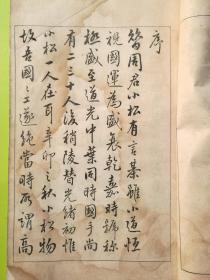 序
嘗聞周君小松有言棊雖小道恆
視國運為盛衰乾嘉時號稱
極盛至道光中葉同時國手尚
有二三十人後稍陵替光緒初惟
小松一人在耳辛卯之秋小松物
故吾國之工遂絕當時所謂高